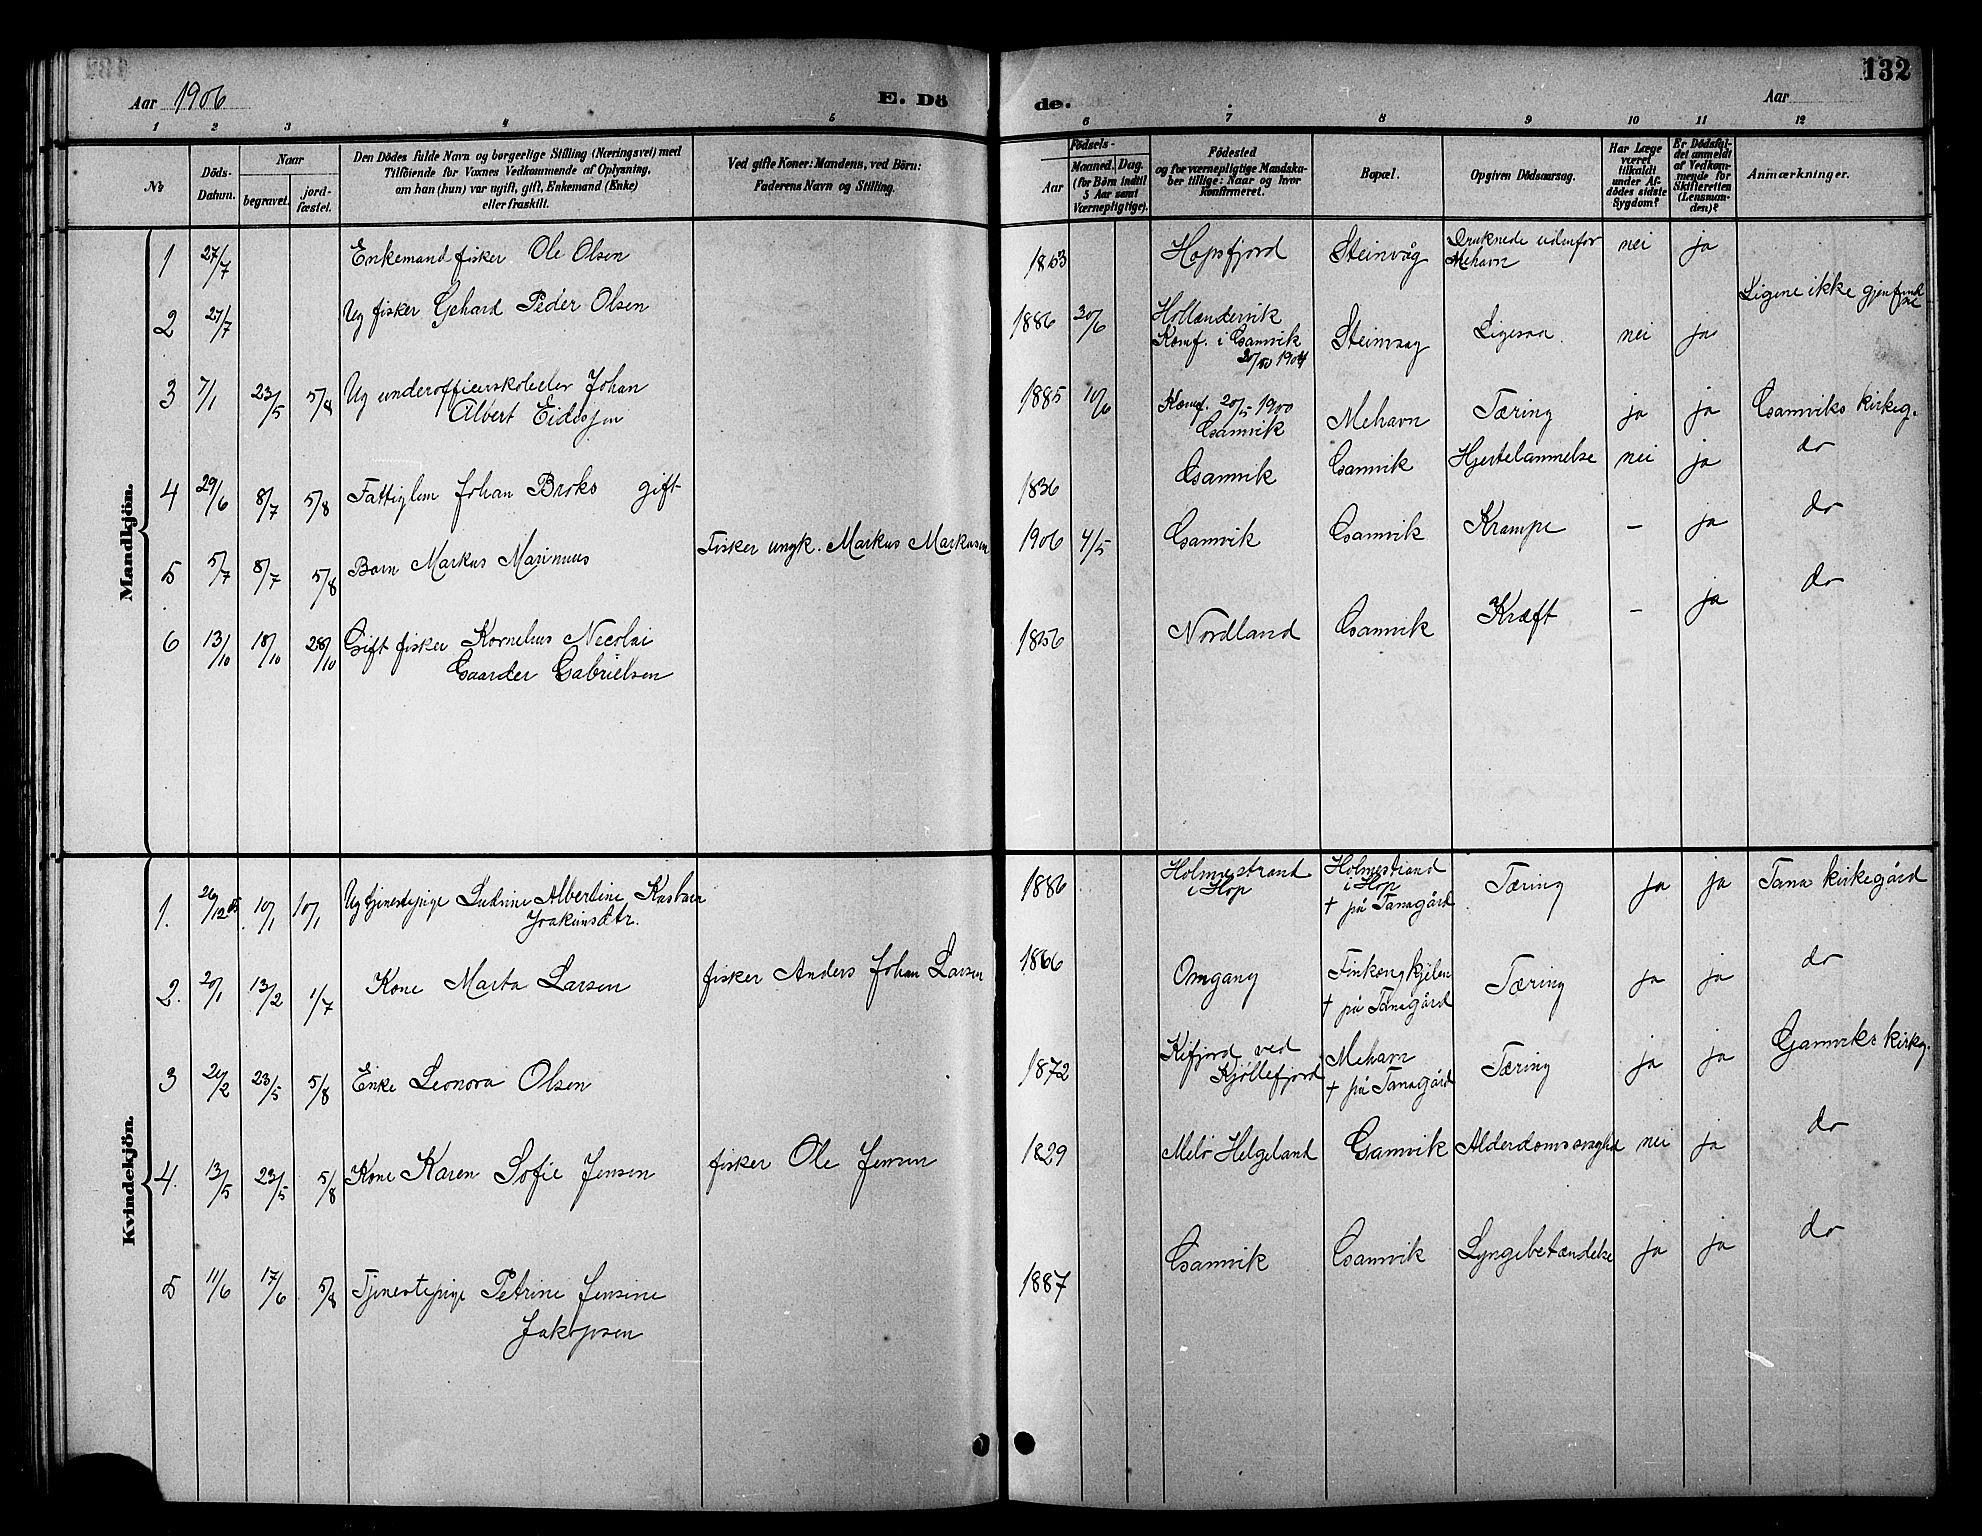 132
Aar 1906
E. Dö
de.
Aar
1 2 3 4 5 6 7 8 9 10 11 12
No
Döds-Datum.
Naar
begravet.
jord-fæstet.
Den Dödes fulde Navn og borgerlige Stilling (Næringsvei) med
Tilföiende for Voxnes Vedkommende af Oplysning,
om han (hun) var ugift, gift, Enkemand (Enke)
eller fraskilt.
Ved gifte Koner: Mandens, ved Börn:
Faderens Navn og Stilling.
Födsels-
Aar
Maaned. Dag.
(for Börn indtil
5 Aar samt
Værnepligtige).
Födested
og for værnepligtige Mandska-
ber tillige: Naar og hvor
konfirmeret.
Bopæl.
Opgiven Dödsaarsag.
Har Læge
været
tilkaldt
under Af-
dödes sidste
Sygdom?
Er Dödsfal-
det anmeldt
af Vedkom-
mende for
Skifteretten
(Lensman-
den)?
Anmærkninger.
Mandkjön.
1 27/7 Enkemand fisker Ole Olsen 1863 Hopsfjord Steinvåg Druknede udenfor Mehavn nei ja
Ligene ikke gjenfundne
2 27/7 Ug fisker Gehard Peder Olsen 1886 30/6 Hollændervik
Konf. i Gamvik
1904 Steinvag Ligesaa. nei ja
3 7/1 23/5 5/8 Ug underofficerskoleelev Johan
Albert Eidissen 1885 10/6 Konf. 20/5 1900
Gamvik Mehavn Tæring ja ja Gamviks kirkeg.
4 29/6 8/7 5/8 Fattiglem Johan Broks gift 1836 Gamvik Gamvik Hjertelammelse nei ja do
5 5/7 8/7 5/8 Barn Markus Marinius Fisker ungk. Markus Markusen 1906 4/5 Gamvik Gamvik Krampe – ja do
6 13/10 18/10 28/10 Gift fisker Kornelius Nicolai
Gaarder Gabrielsen 1856 Nordland Gamvik Kræft – ja do
Kvindekjön.
1. 26/12 05 10/1 10/1 Ug tjenestepige Ludvine Albertine
Joakimsdtr. 1886 Holmestrand
i Hop Holmestrand
i Hop
† på Tanagård Tæring ja ja Tana kirkegård
2. 20/1 13/2 1/7 Kone Marta Larsen fisker Anders Johan Larsen 1866 Omgang Finkongkjeilen
† på Tanagård Tæring ja ja do
3 26/2 23/5 5/8 Enke Leonora Olsen 1872 Kifjord ved
Kjøllefjord Mehavn
† på Tanagård Tæring ja ja Gamviks kirkg.
4. 13/5 23/5 5/8 Kone Karen Sofie Jensen fisker Ole Jensen 1829 Melø Helgeland Gamvik Alderdomssvaghd nei ja do
5 11/6 17/6 5/8 Tjenestepige Petrine Jensine
Jakopsen 1887 Gamvik Gamvik Lyngebetændelse ja ja do